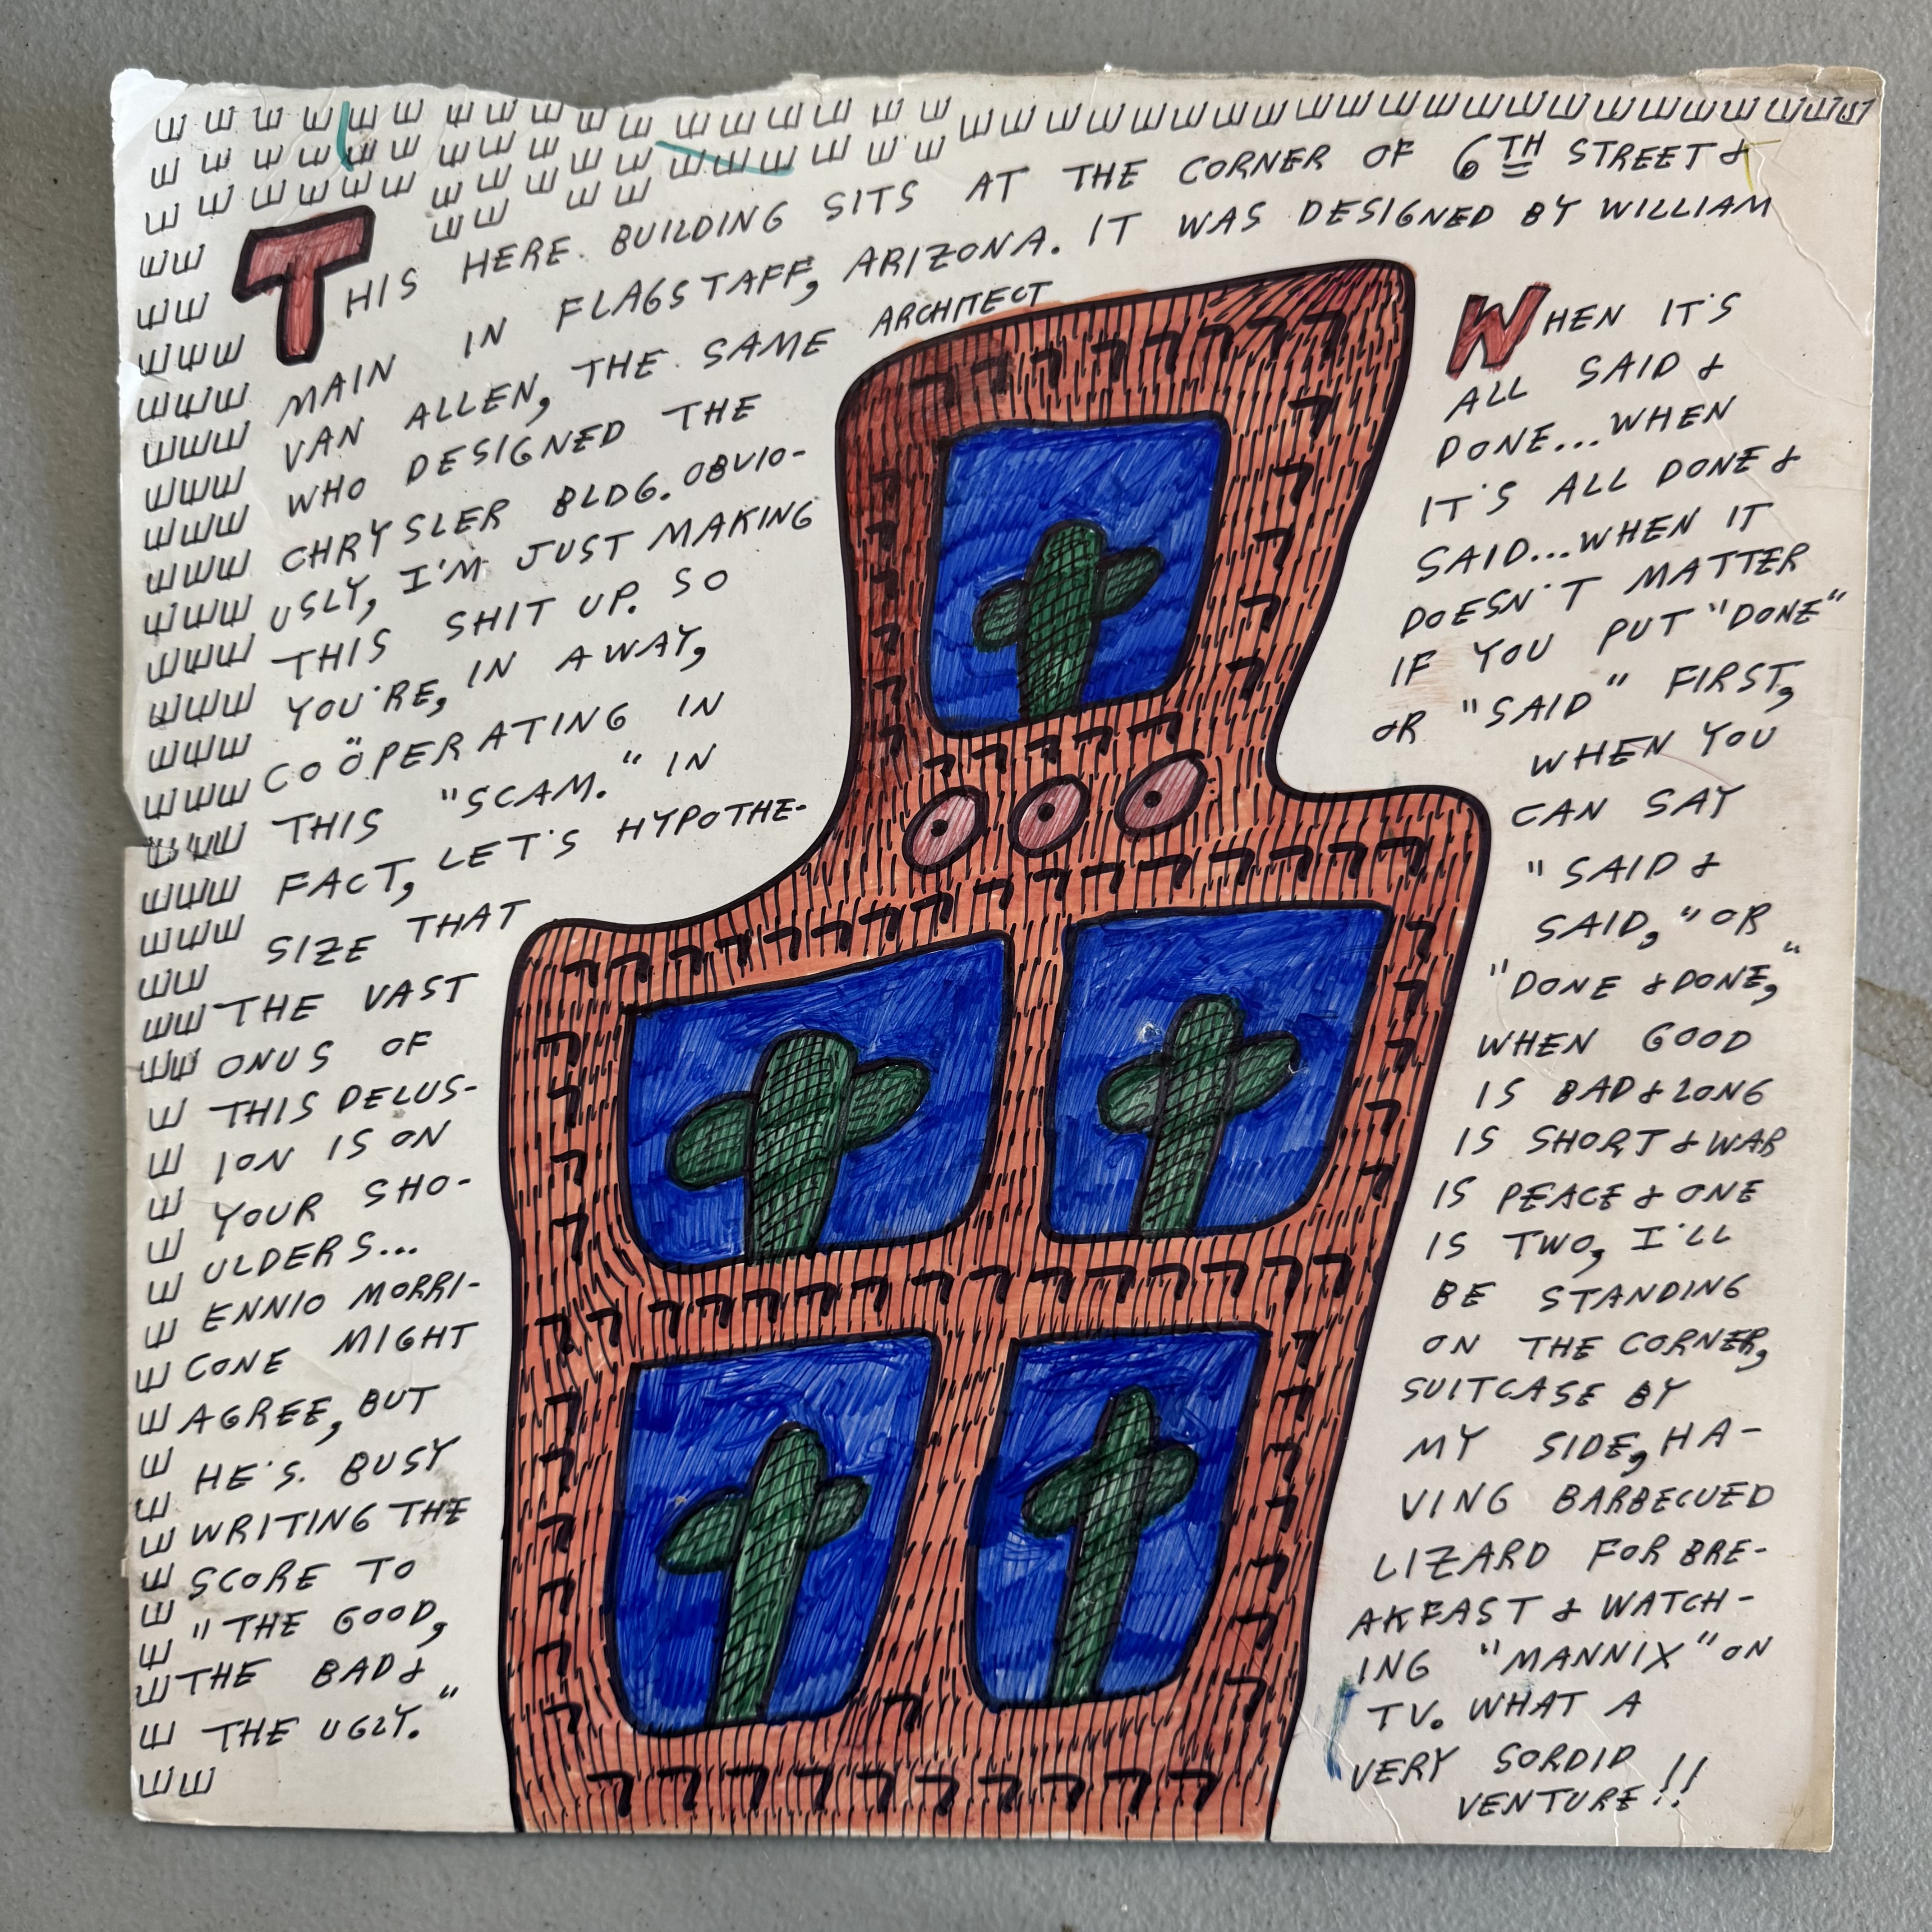 THIS HERE BUILDING SITS AT THE CORNER OF 6TH STREET &
MAIN IN FLAGSTAFF, ARIZONA. IT WAS DESIGNED BY WILLIAM
VAN ALLEN, THE SAME ARCHITECT
WHO DESIGNED THE
CHRYSLER BLDG. OBVIO-
USLY, I'M JUST MAKING
THIS SHIT UP. SO
YOU'RE, IN A WAY,
COÖPERATING IN
THIS "SCAM." IN
FACT, LET'S HYPOTHE-
SIZE THAT
THE VAST
ONUS OF
THIS DELUS-
ION IS ON
YOUR SHO-
ULDERS...
ENNIO MORRI-
CONE MIGHT
AGREE, BUT
HE'S. BUSY
WRITING THE
SCORE TO
"THE GOOD,
THE BAD &
THE UGLY."
WHEN IT'S
ALL SAID &
DONE...WHEN
IT'S ALL DONE &
SAID...WHEN IT
DOESN'T MATTER
IF YOU PUT "DONE"
OR "SAID" FIRST,
WHEN YOU
CAN SAY
"SAID &
SAID," OR
"DONE & DONE,"
WHEN GOOD
IS BAD & LONG
IS SHORT & WAR
IS PEACE & ONE
IS TWO, I'LL
BE STANDING
ON THE CORNER,
SUITCASE BY
MY SIDE, HA-
VING BARBECUED
LIZARD FOR BRE-
AKFAST & WATCH-
ING "MANNIX" ON
TV. WHAT A
VERY SORDID
VENTURE!!